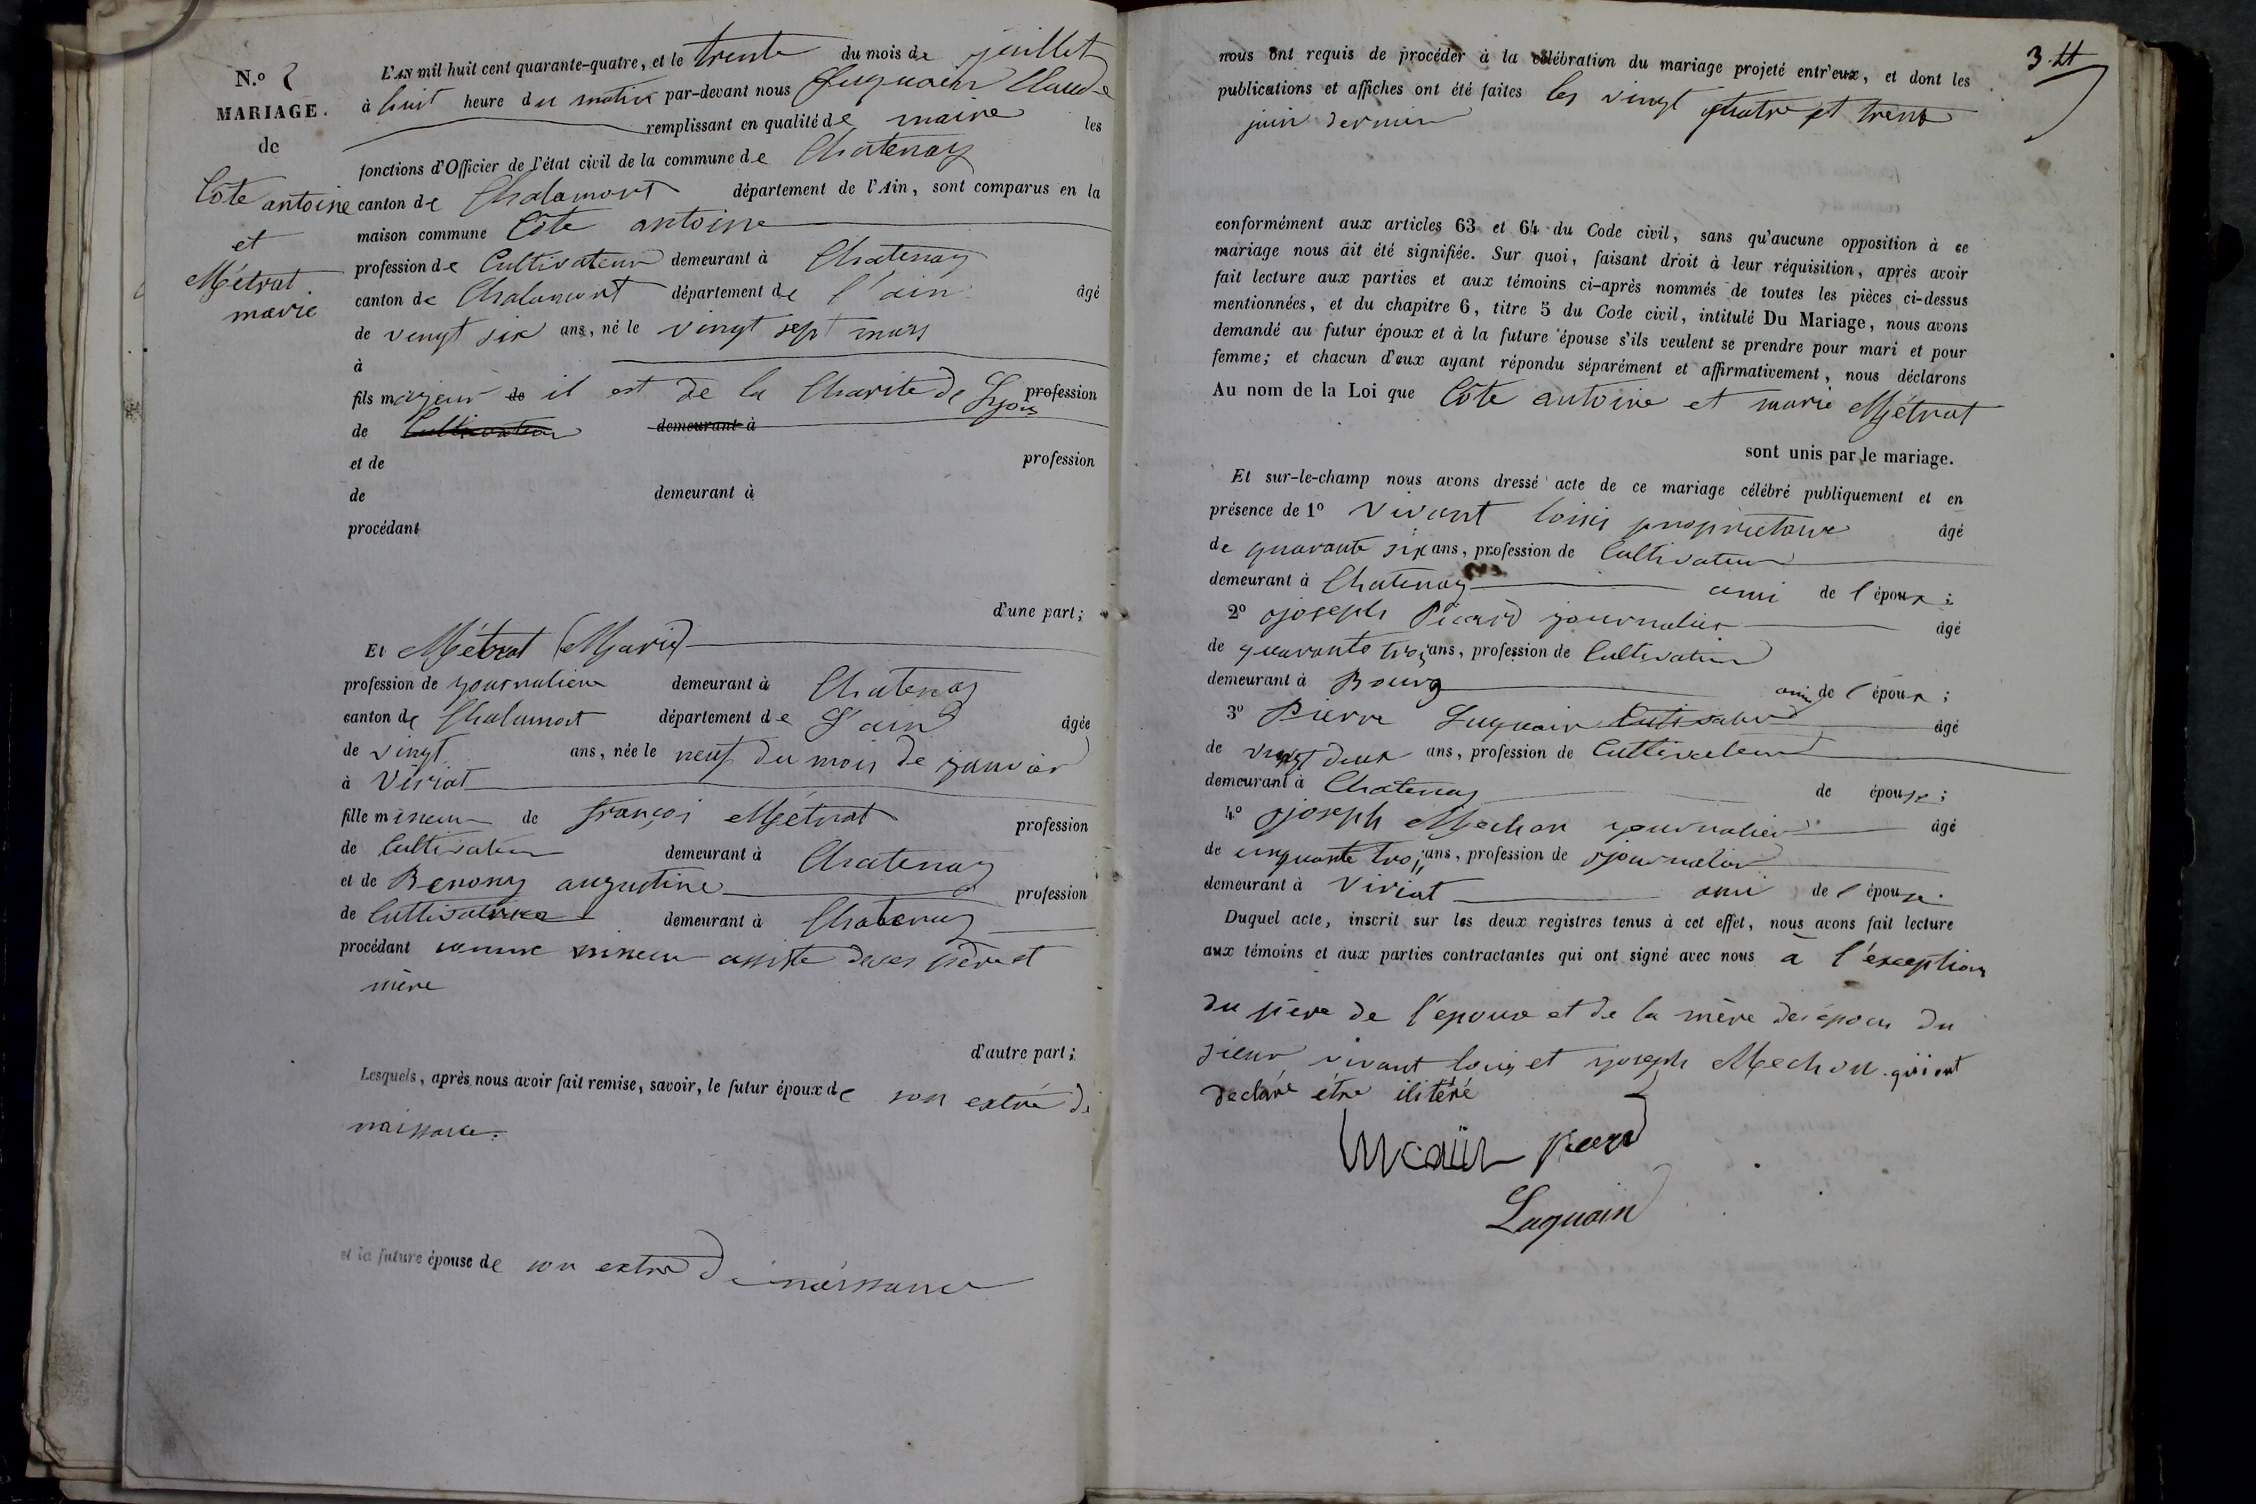 N.º 2
MARIAGE.
de
Côte antoine
et
Métrat
marie
L'AN mil huit cent quarante-quatre, et le trente du mois de juillet
à huit heure du matin par-devant nous Luquain Claude
remplissant en qualité de maire les
fonctions d'Officier de l'état civil de la commune de Chatenay
canton de Chalamont département de l'Ain, sont comparus en la
maison commune Côte antoine
profession de Cultivateur demeurant à Chatenay
canton de Chalamont département de l'ain âgé
de vingt six ans, né le vingt sept mars
à
fils majeur de il est de la Charite de Lyon profession
de Cultivateur demeurant à
et de profession
de demeurant à
procédant
d'une part;
Et Métrat (Marie)
profession de journaliere demeurant à Chatenay
canton de Chalamont département de L'ain âgée
de vingt ans, née le neuf du mois de janvier
à Viriat
fille mineur de françoi Métrat profession
de Cultivateur demeurant à Chatenay
et de Benony augustine profession
de Cultivatrice demeurant à Chatenay
procédant comme mineur assiste deses père et
mère
d'autre part;
Lesquels, après nous avoir fait remise, savoir, le futur époux de son extré de
naissance.
et la future épouse de son extre de naissance
3 tt
nous ont requis de procéder à la célébration du mariage projeté entr'eux, et dont les
publications et affiches ont été faites les vingt quatre et trente
juin dernier
conformément aux articles 63 et 64 du Code civil, sans qu'aucune opposition à ce
mariage nous ait été signifiée. Sur quoi, faisant droit à leur réquisition, après avoir
fait lecture aux parties et aux témoins ci-après nommés de toutes les pièces ci-dessus
mentionnées, et du chapitre 6, titre 5 du Code civil, intitulé Du Mariage, nous avons
demandé au futur époux et à la future épouse s'ils veulent se prendre pour mari et pour
femme; et chacun d'eux ayant répondu séparément et affirmativement, nous déclarons
Au nom de la Loi que Côte antoine et marie Métrat
sont unis par le mariage.
Et sur-le-champ nous avons dressé acte de ce mariage célébré publiquement et en
présence de 1º Vivant louis propriétaire âgé
de quarante six ans, profession de Cultivateur
demeurant à Chatenay ami de l'époux;
2º joseph Picard journalier âgé
de quarante trois ans, profession de Cultivateur
demeurant à Bourg ami de l'époux;
3º Pierre Luquain Cultivateur âgé
de vingt deux ans, profession de Cultivateur
demeurant à Chatenay de épouse;
4º joseph Mechon journalier âgé
de cinquante trois ans, profession de journalier
demeurant à Viriat ami de l'épouse.
Duquel acte, inscrit sur les deux registres tenus à cet effet, nous avons fait lecture
aux témoins et aux parties contractantes qui ont signé avec nous à l'exception
du père de l'épouse et de la mère des époux du
sieur vivant louis et joseph Mechon qui ont
declaré être ilitéré
Luquain